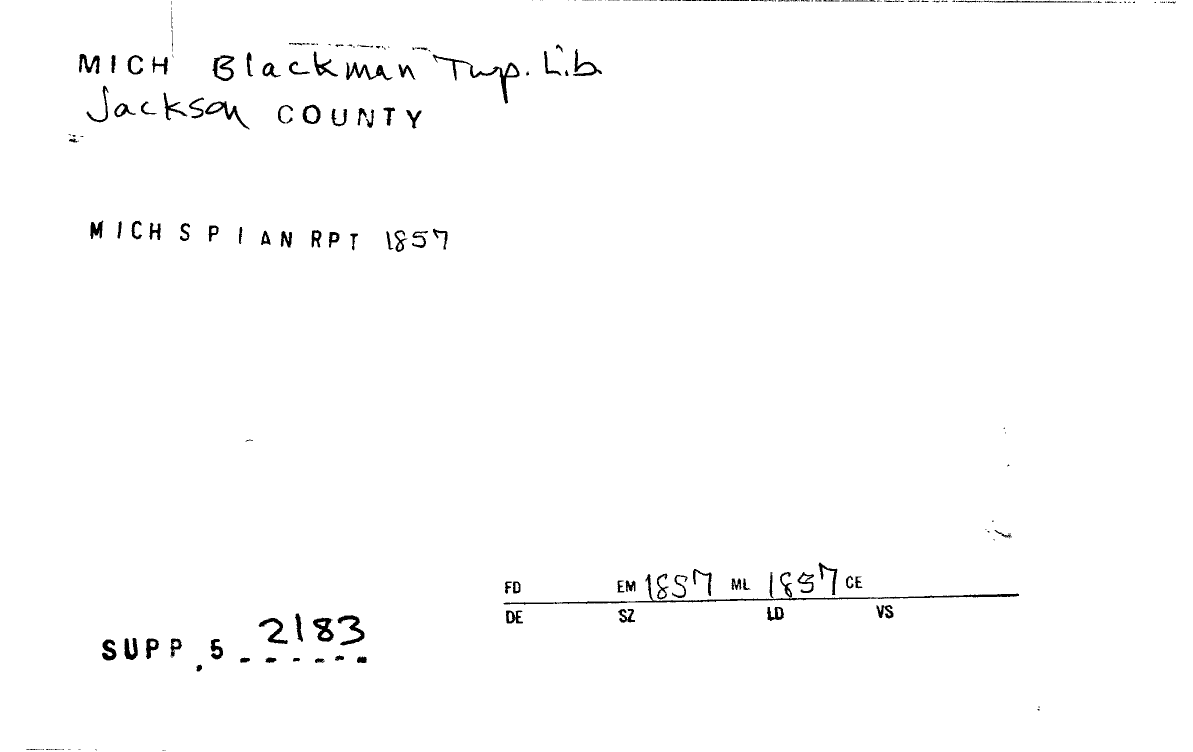 MICH Blackman Twp. Lib.
Jackson COUNTY
MICH S P I AN RPT 1857
FD EM 1857 ML 1857 CE
DE SZ LD VS
SUPP. 5 2183